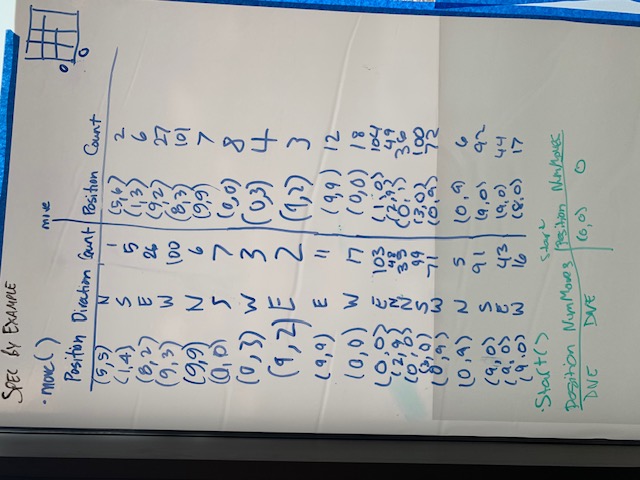 SPEC BY EXAMPLE
• move() move
Position Direction Count Position Count
(5,5) N 1 (5,6) 2
(1,4) S 5 (1,3) 6
(8,2) E 26 (9,2) 27
(9,3) W 100 (8,3) 101
(9,9) N 6 (9,9) 7
(0,0) S 7 (0,0) 8
(0,3) W 3 (0,3) 4
(9,2) E 2 (9,2) 3
(9,9) E 11 (9,9) 12
(0,0) W 17 (0,0) 18
(0,0) E 103 (1,0) 104
(2,9) N 48 (2,9) 49
(0,0) N 35 (0,1) 36
(3,0) S 99 (3,0) 100
(0,9) W 71 (0,9) 72
(0,9) N 5 (0,9) 6
(9,0) S 91 (9,0) 92
(9,0) E 43 (9,0) 44
(9,0) W 16 (8,0) 17
• Start() Start
Position NumMoves Position NumMoves
DNE DNE (0,0) 0
0
0